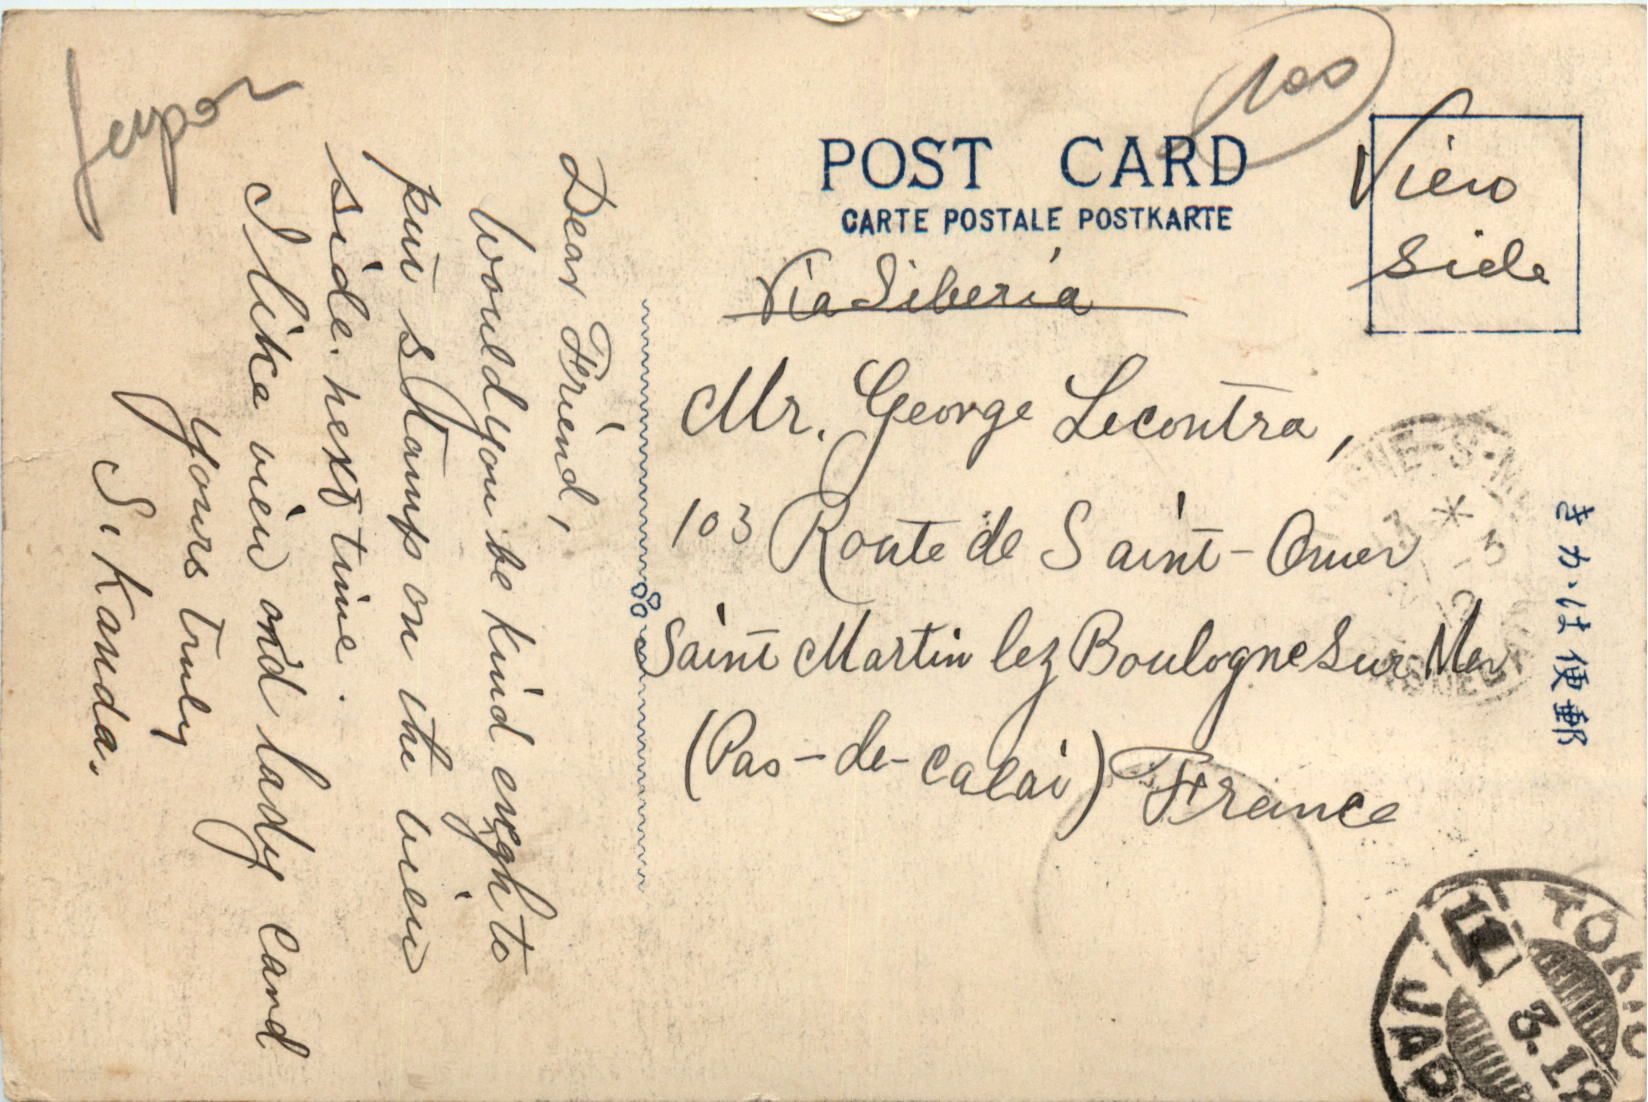 Japon
100
POST CARD
CARTE POSTALE POSTKARTE
View
side
Via Siberia
Mr. George Lecontra,
103 Route de Saint-Omer
Saint Martin lez Boulogne Sur Mer
(Pas-de-calai) France
きかは便郵
Dear Friend,
Would you be kind engh to
put stamp on the view
side. next time.
I like view and lady card
yours truly
S. Kanda.
TOKIO
3.12
JAP